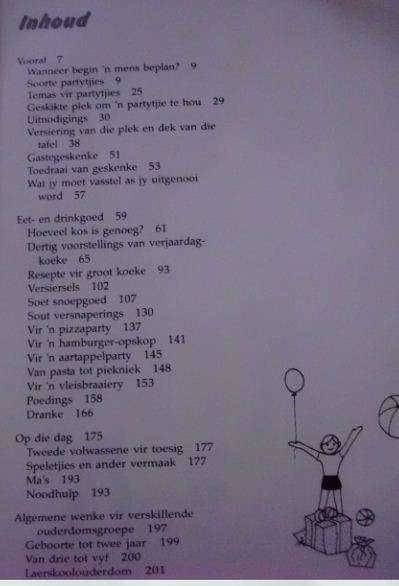 Inhoud
Vooraf 7
Wanneer begin 'n mens beplan? 9
Soorte partytjies 9
Temas vir partytjies 25
Geskikte plek om 'n partytjie te hou 29
Uitnodigings 30
Versiering van die plek en dek van die
tafel 38
Gastegeskenke 51
Toedraai van geskenke 53
Wat jy moet vasstel as jy uitgenooi
word 57
Eet- en drinkgoed 59
Hoeveel kos is genoeg? 61
Dertig voorstellings van verjaardag-
koeke 65
Resepte vir groot koeke 93
Versiersels 102
Soet snoepgoed 107
Sout versnaperings 130
Vir 'n pizzaparty 137
Vir 'n hamburger-opskop 141
Vir 'n aartappelparty 145
Van pasta tot piekniek 148
Vir 'n vleisbraaiery 153
Poedings 158
Dranke 166
Op die dag 175
Tweede volwassene vir toesig 177
Speletjies en ander vermaak 177
Ma's 193
Noodhulp 193
Algemene wenke vir verskillende
ouderdomsgroepe 197
Geboorte tot twee jaar 199
Van drie tot vyf 200
Laerskoolouderdom 201